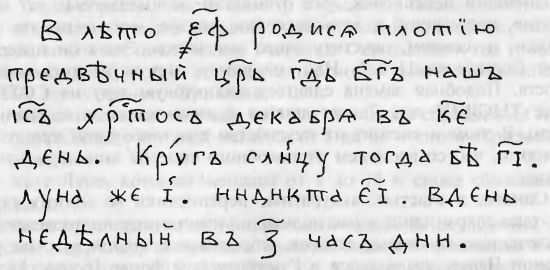 В лѣто ҂еф родися плотїю
предвѣчный цр҃ь гд҃ь бг҃ъ нашъ
іс҃ъ хр҃тосъ декабря въ к҃е
день. Крꙋгъ слн҃цу тогда бѣ г҃і.
луна же і҃. индикта е҃і. В день
недѣлный въ з҃ часъ дни.